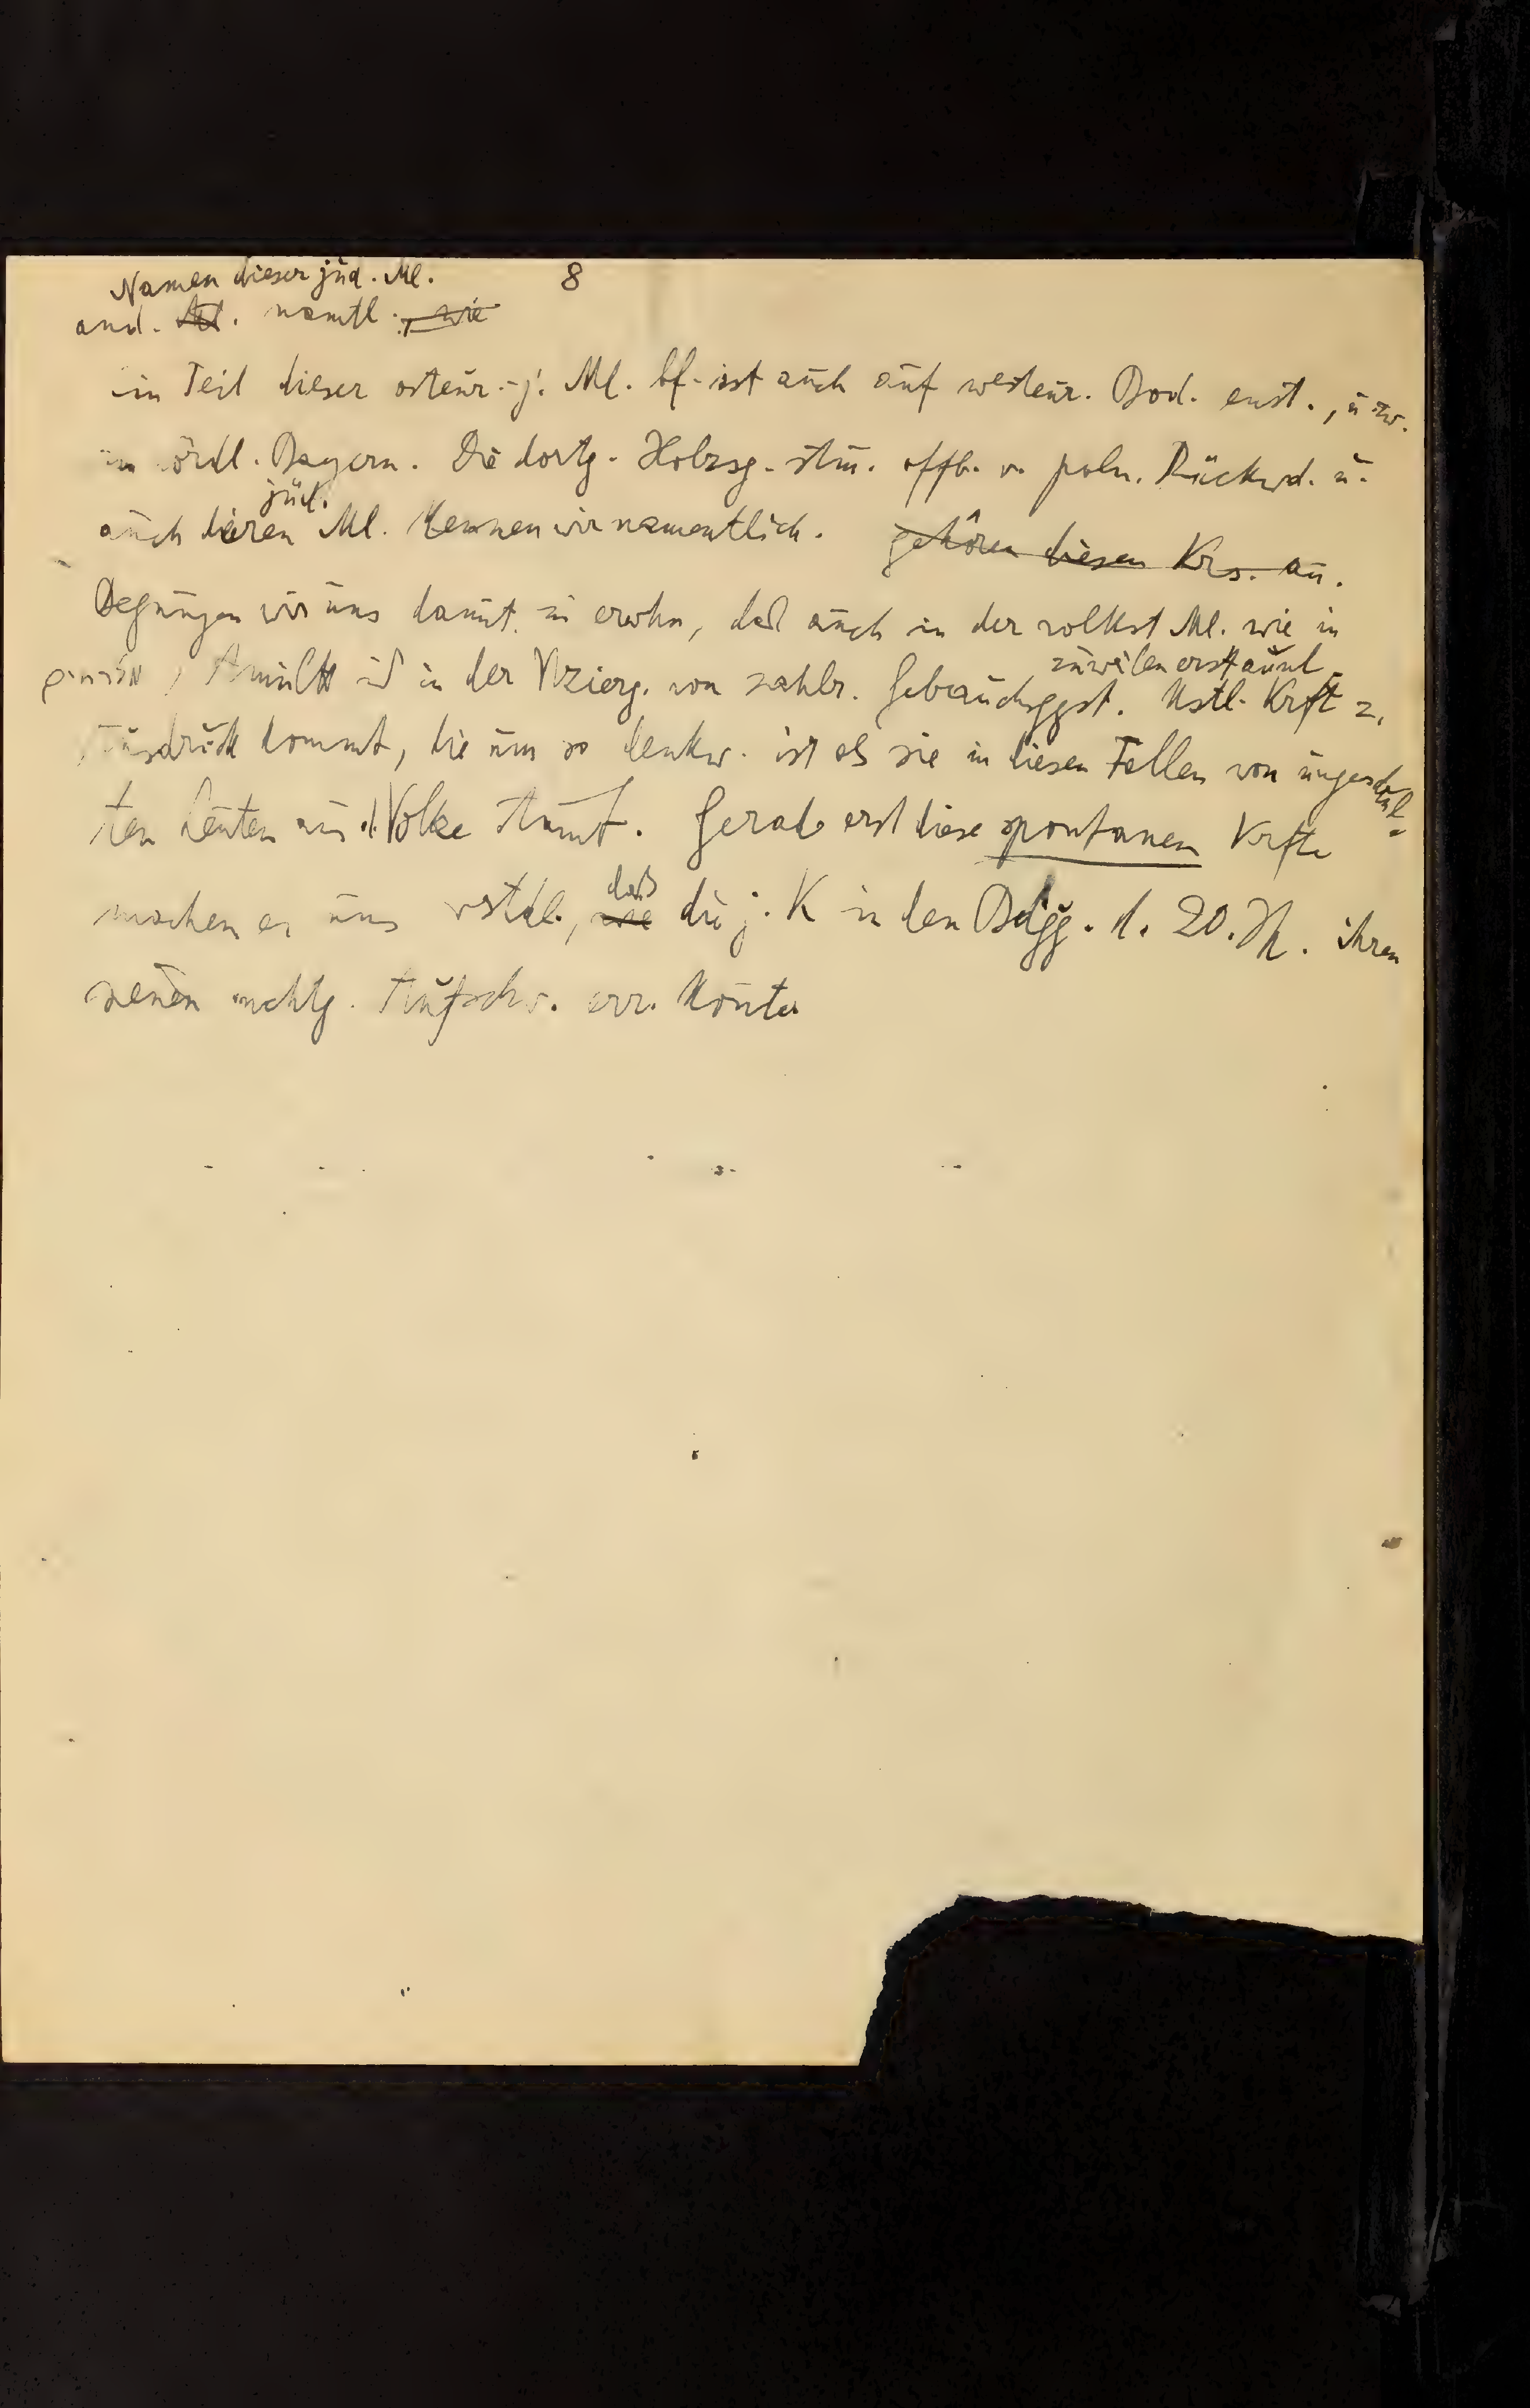 8
Namen dieser jüd. Ml.
and. Ml. namtl., wie
in Teil dieser osteur.-j. Ml. bf. ist auch auf westeur. Bod. enst., u zw.
ördl. Bayern. Die dortg. Holzsg. stm. offb. v. poln. Rückwd. u.
jüd.
auch deren Ml. kennen wir namentlich. gehören diesem Krs. an.
Begnügen wir uns damit zu erwhn, daß auch in der volkst Ml. wie in
zuweilen erstaunl.
in der Vrzierg. von zahlr. Gebrauchsggst. kstl. Krft z.
Ausdruck kommt, die um so denkw. ist als sie in diesen Fällen von ungeschul-
ten Leuten aus d. Volke stammt. Gerade erst diese spontanen Krfte
daß
machen es uns vstdl., wie die j. K in den Bdgg. d. 20. Jh. ihren
neuen mchtg. Aufschw. err. konnte